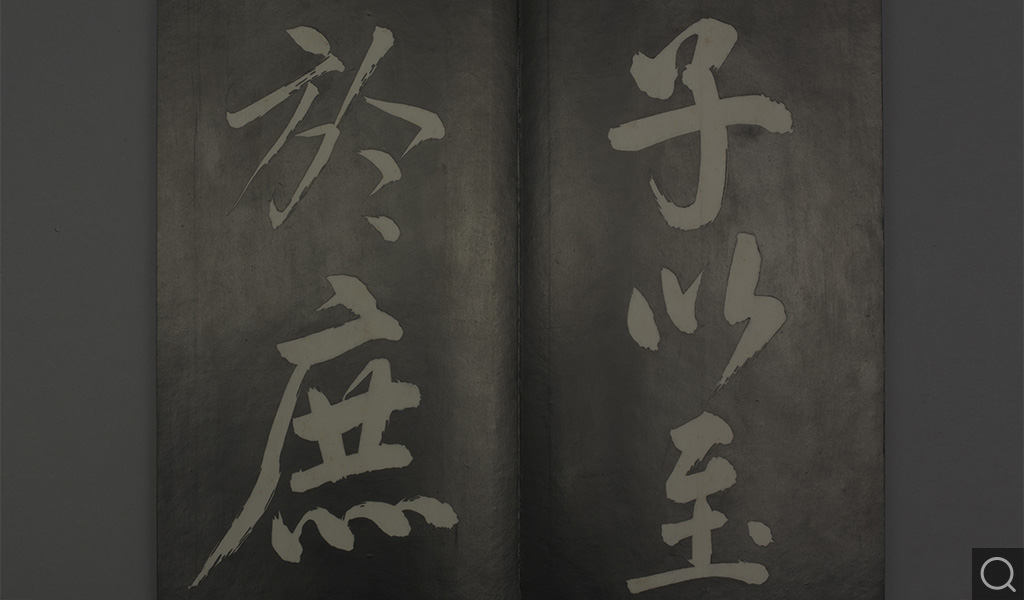 子以至
於庶